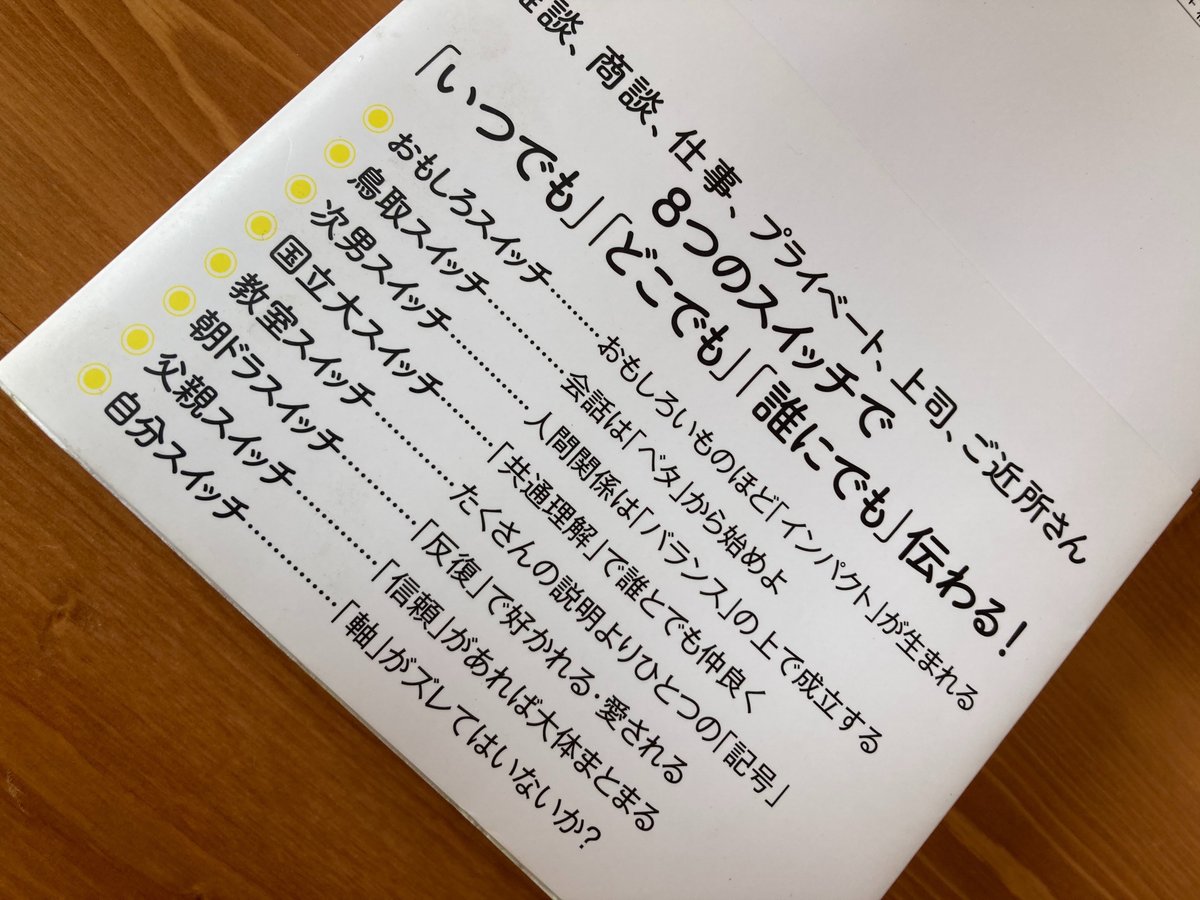 雑談、商談、仕事、プライベート、上司、ご近所さん
8つのスイッチで
「いつでも」「どこでも」「誰にでも」伝わる!
おもしろスイッチ……おもしろいものほど「インパクト」が生まれる
鳥取スイッチ……会話は「ベタ」から始めよ
次男スイッチ……人間関係は「バランス」の上で成立する
国立大スイッチ……「共通理解」で誰とでも仲良く
教室スイッチ……たくさんの説明よりひとつの「記号」
朝ドラスイッチ……「反復」で好かれる・愛される
父親スイッチ……「信頼」があれば大体まとまる
自分スイッチ……「軸」がズレてはいないか?